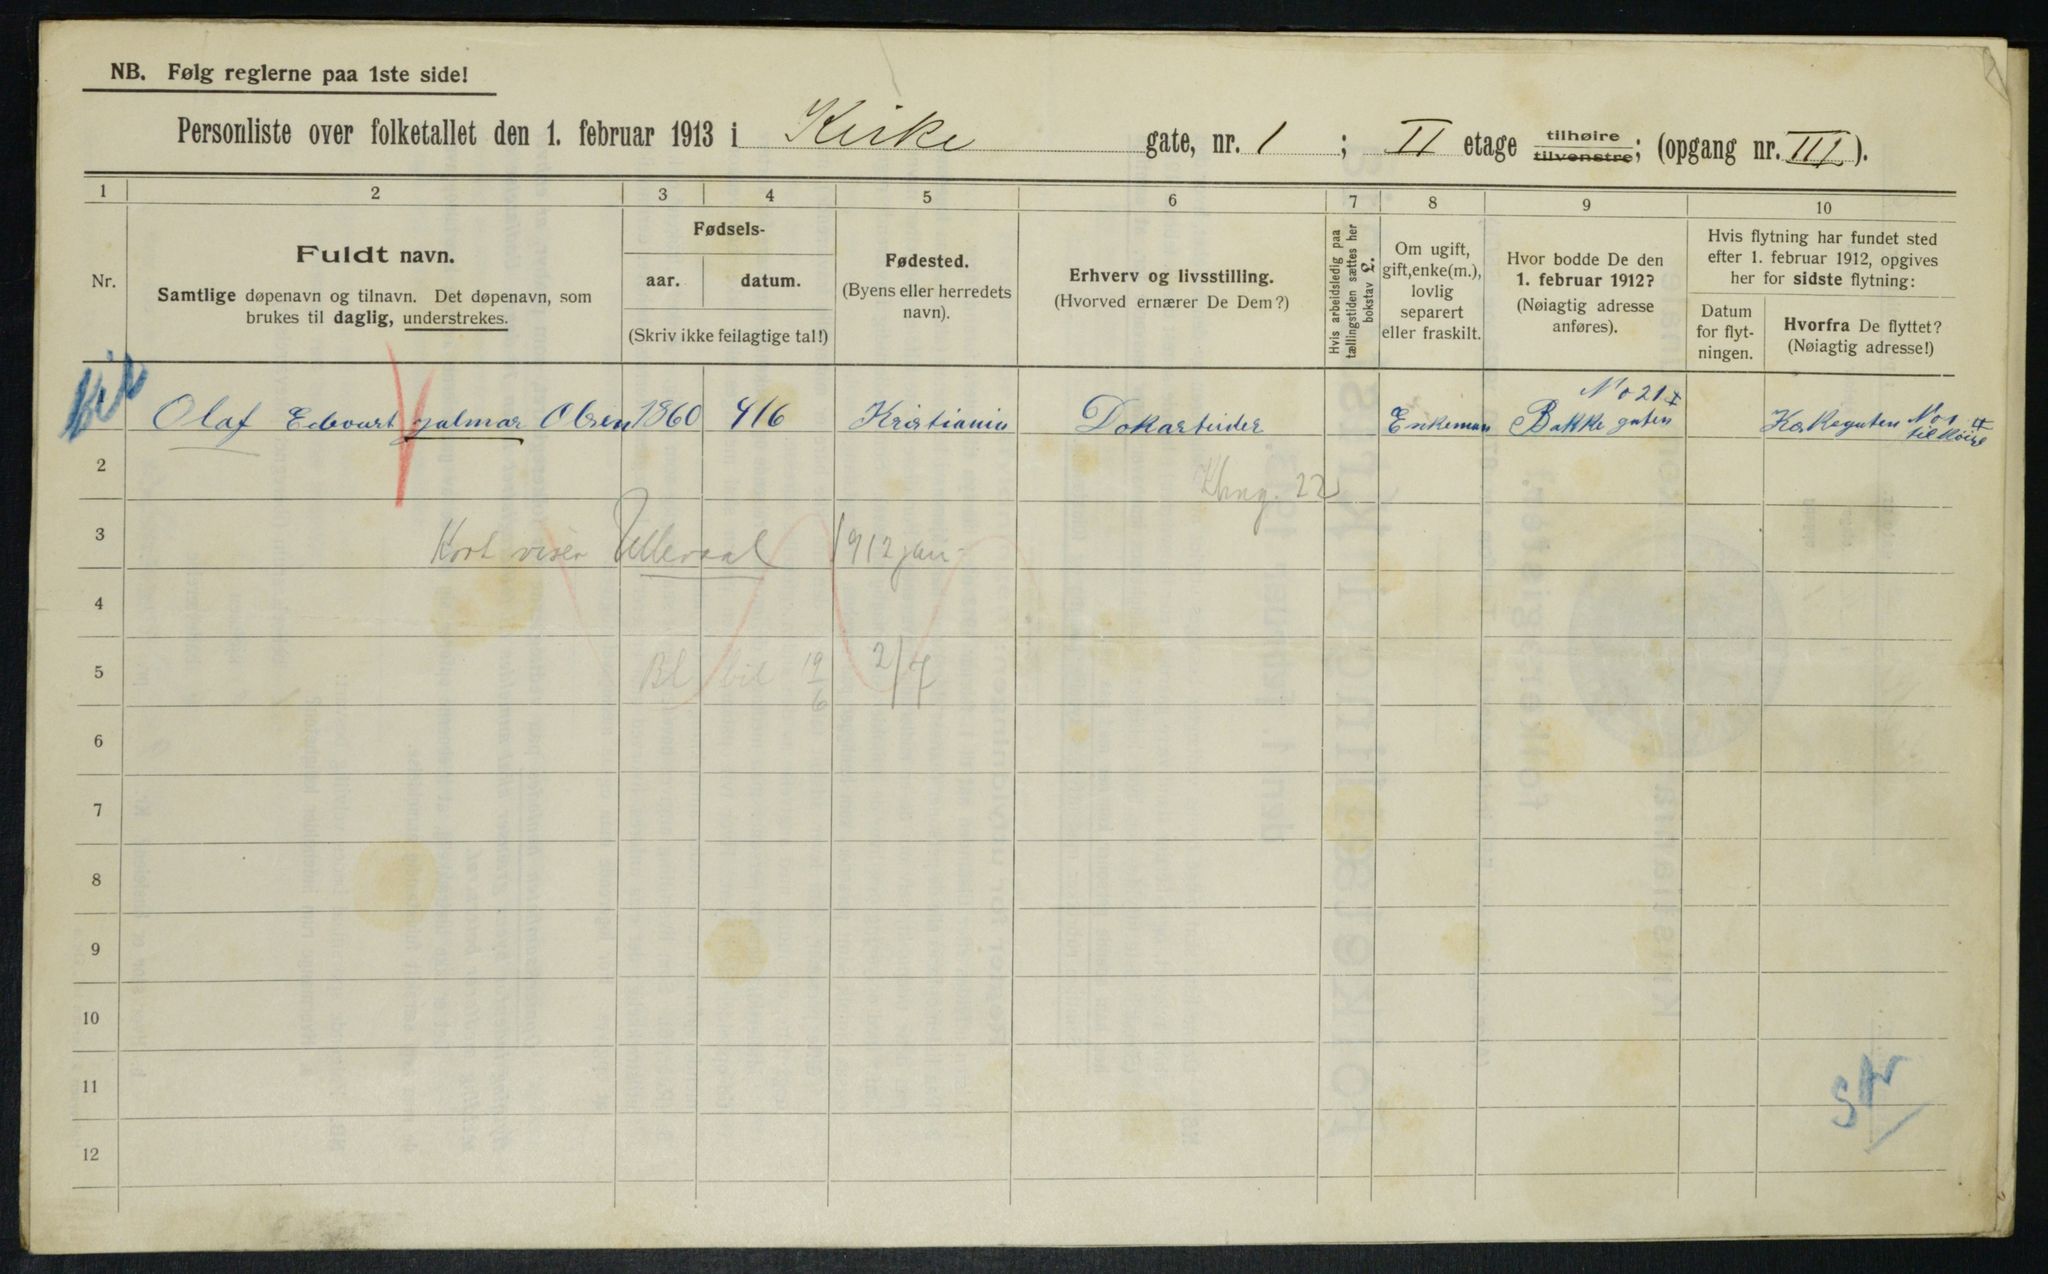 NB. Følg reglerne paa 1ste side!
Personliste over folketallet den 1. februar 1913 i Kirke gate, nr. 1 ; II etage tilhøire tilvenstre; (opgang nr. III ).
1 2 3 4 5 6 7 8 9 10
Nr.
Fuldt navn.
Samtlige døpenavn og tilnavn. Det døpenavn, som
brukes til daglig, understrekes.
Fødsels-
aar. datum.
(Skriv ikke feilagtige tal!)
Fødested.
(Byens eller herredets
navn).
Erhverv og livsstilling.
(Hvorved ernærer De Dem?)
Hvis arbeidsledig paa
tællingstiden sættes her
bokstav £.
Om ugift,
gift, enke(m.),
lovlig
separert
eller fraskilt.
Hvor bodde De den
1. februar 1912?
(Nøiagtig adresse
anføres).
Hvis flytning har fundet sted
efter 1. februar 1912, opgives
her for sidste flytning:
Datum
for flyt-
ningen.
Hvorfra De flyttet?
(Nøiagtig adresse!)
Olaf Edvart Hjalmar Olsen 1860 4/6 Kristiania Dokarbeider Enkeman Bakke gaten No 21 Kirkegaten No 1 II tilhøire
2
Khng. 22
3
Kort viser Ullevaal 1912 jan-
4
5
Bl bil 19/6 2/7
6
7
8
9
10
11
12